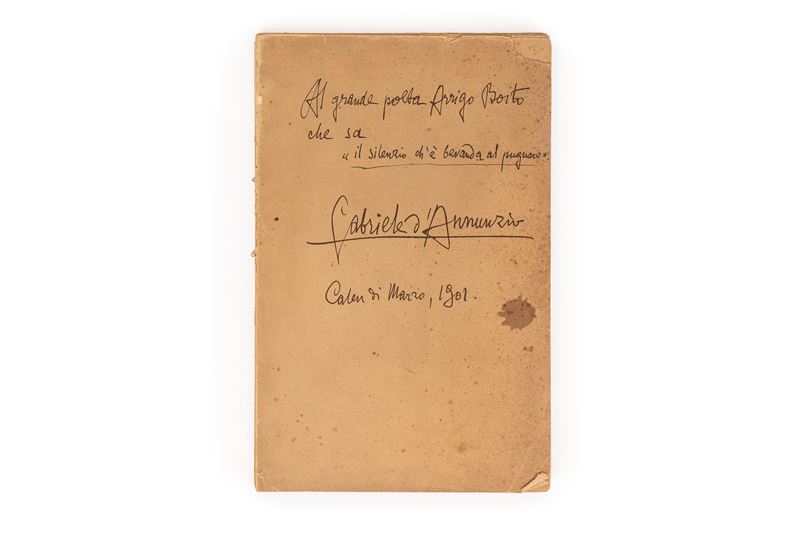 Al grande poeta Arrigo Boito
che sa
"il silenzio ch'è bevanda al pugnace".
Gabriele d'Annunzio
Calen di Marzo, 1901.